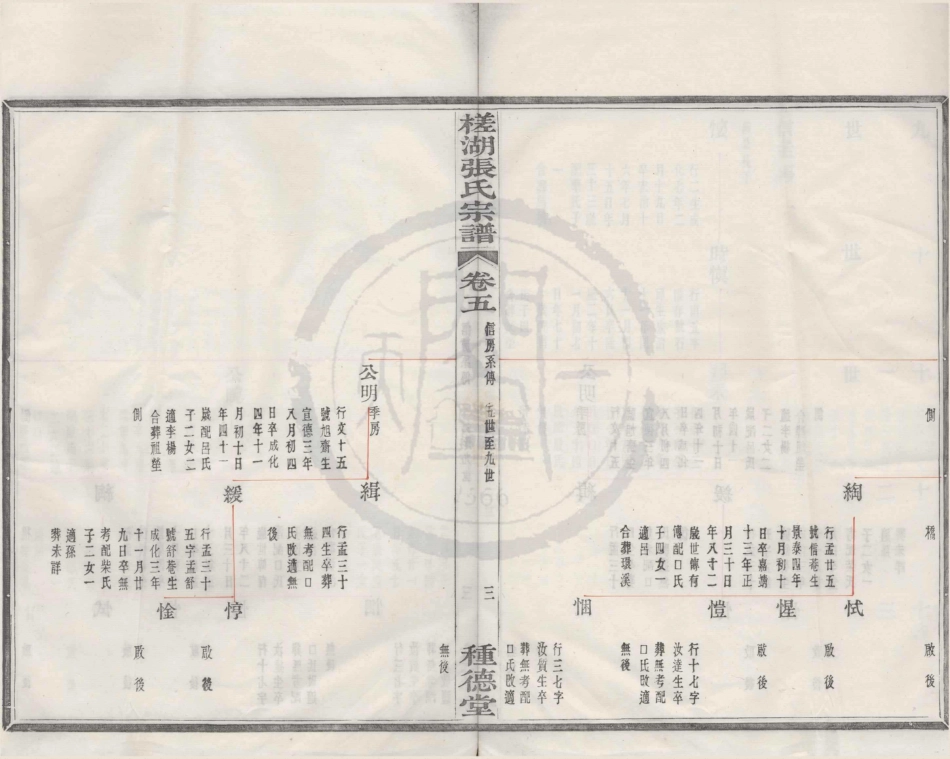 側
穚
啟後
綯
行孟廿五
號僖菴生
景泰四年
十月初十
日卒嘉靖
十三年正
月三十日
年八十二
歲世傳有
傳配口氏
子四女一
適呂
合葬環溪
㤅
啟後
惺
啟後
愷
行十七字
汝達生卒
葬無考配
口氏改適
無後
悃
行三七字
汝質生卒
葬無考配
口氏改適
槎湖張氏宗譜
卷五
信房系傳
五世至九世
三
種德堂
無後
公明季房
緝
行孟三十
四生卒葬
無考配口
氏改適無
後
行文十五
號旭齋生
宣德三年
八月初四
日卒成化
四年十一
月初十日
年四十一
歲配呂氏
子二女二
適李楊
合葬祖塋
側
緩
行孟三十
五字孟舒
號舒菴生
成化三年
十一月廿
九日卒無
考配柴氏
子二女一
適孫
葬未詳
惇
啟後
惍
啟後